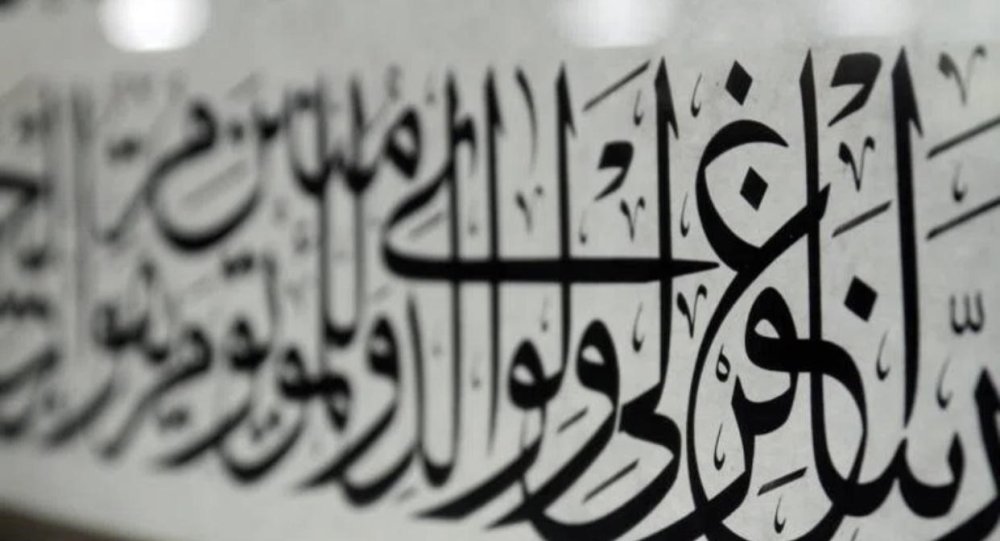 رَبَّنَا اغْفِرْ لِي وَلِوَالِدَيَّ وَلِلْمُؤْمِنِينَ يَوْمَ يَقُومُ